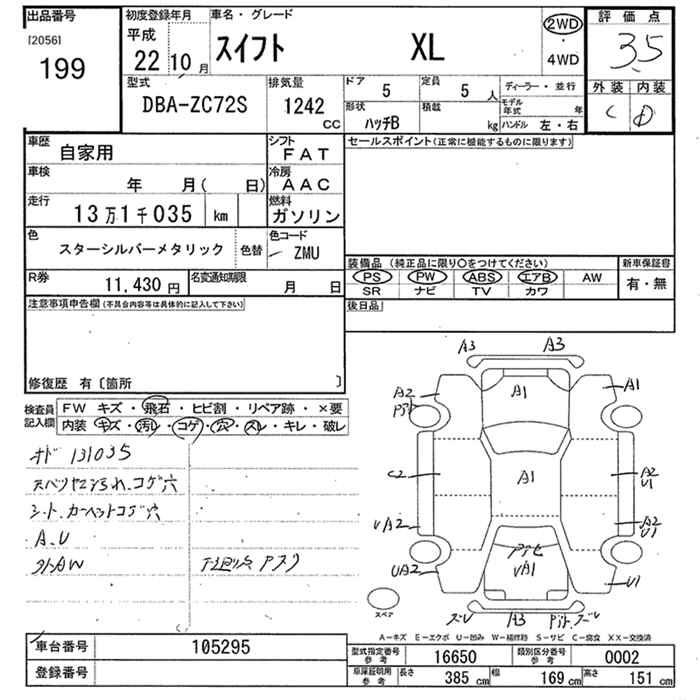 出品番号
[2056]
199
初度登録年月
平成
22 年 10 月
車名・グレード
スイフト XL
2WD
・
4WD
評価点
3.5
外装 内装
C D
型式
DBA-ZC72S
排気量
1242 cc
ドア 5
定員 5 人
形状 ハッチB
積載 kg
ディーラー・並行
モデル年式 年
ハンドル 左・右
車歴 自家用
シフト FAT
車検 年 月( 日)
冷房 AAC
走行 13万1千035 km
燃料 ガソリン
色 スターシルバーメタリック
色替
色コード ZMU
R券 11,430 円
名変通知期限 月 日
セールスポイント(正常に機能するものに限ります)
装備品(純正品に限り○をつけてください)
PS PW ABS エアB AW
SR ナビ TV カワ
新車保証書
有・無
後日品
注意事項申告欄(不具合内容等は具体的に記入して下さい)
修復歴 有〔箇所 〕
検査員記入欄
FW キズ・飛石・ヒビ割・リペア跡・×要
内装 キズ・汚レ・コゲ・穴・スレ・キレ・破レ
オド 131035
シート、カーペットコゲ穴
A.U
外AW
A3 A3
A2 A1 A1
C2 A1 A2
U1
UA2 A2
U1
UA2 UA1 U1
A3
スペア
A-キズ E-エクボ U-凹み W-補修跡 S-サビ C-腐食 XX-交換済
車台番号 105295
登録番号
型式指定番号 参考 16650
類別区分番号 参考 0002
車庫証明用 参考
長さ 385 cm
幅 169 cm
高さ 151 cm